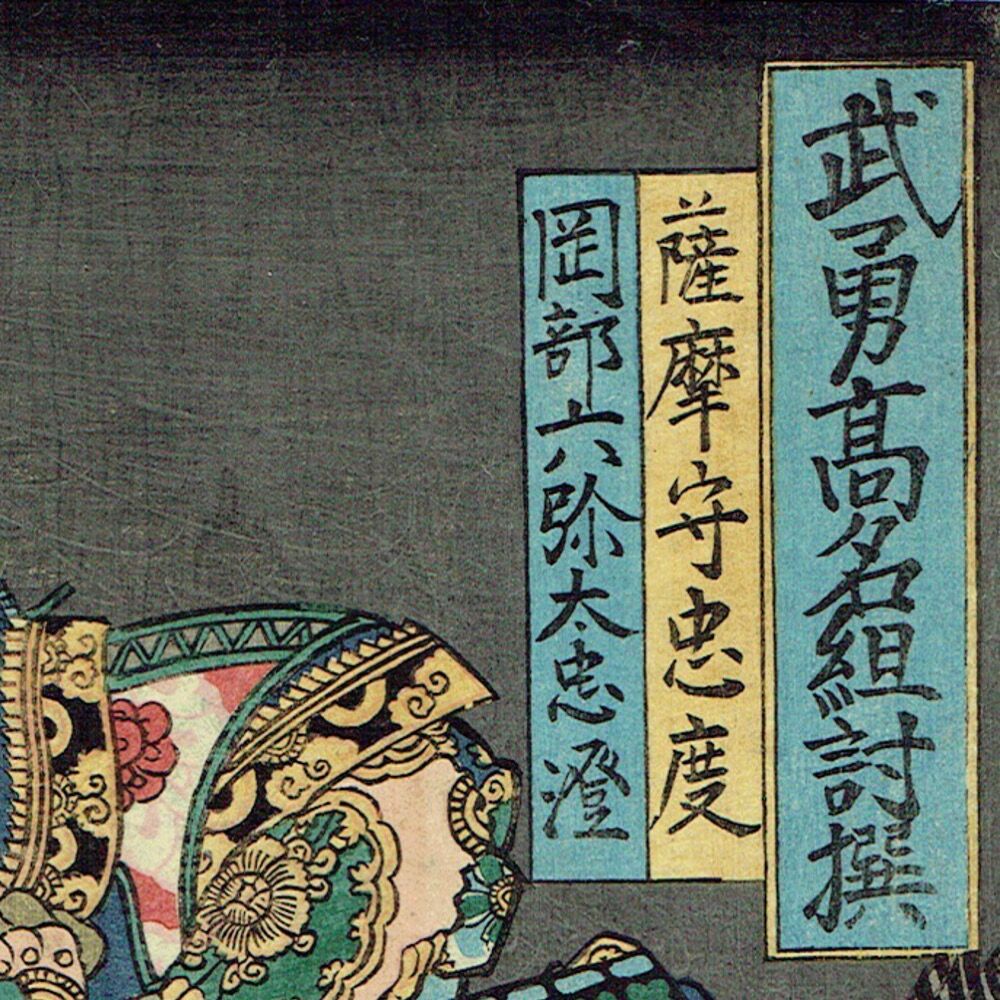 武勇髙名組討撰
薩摩守忠度
岡部六弥太忠澄